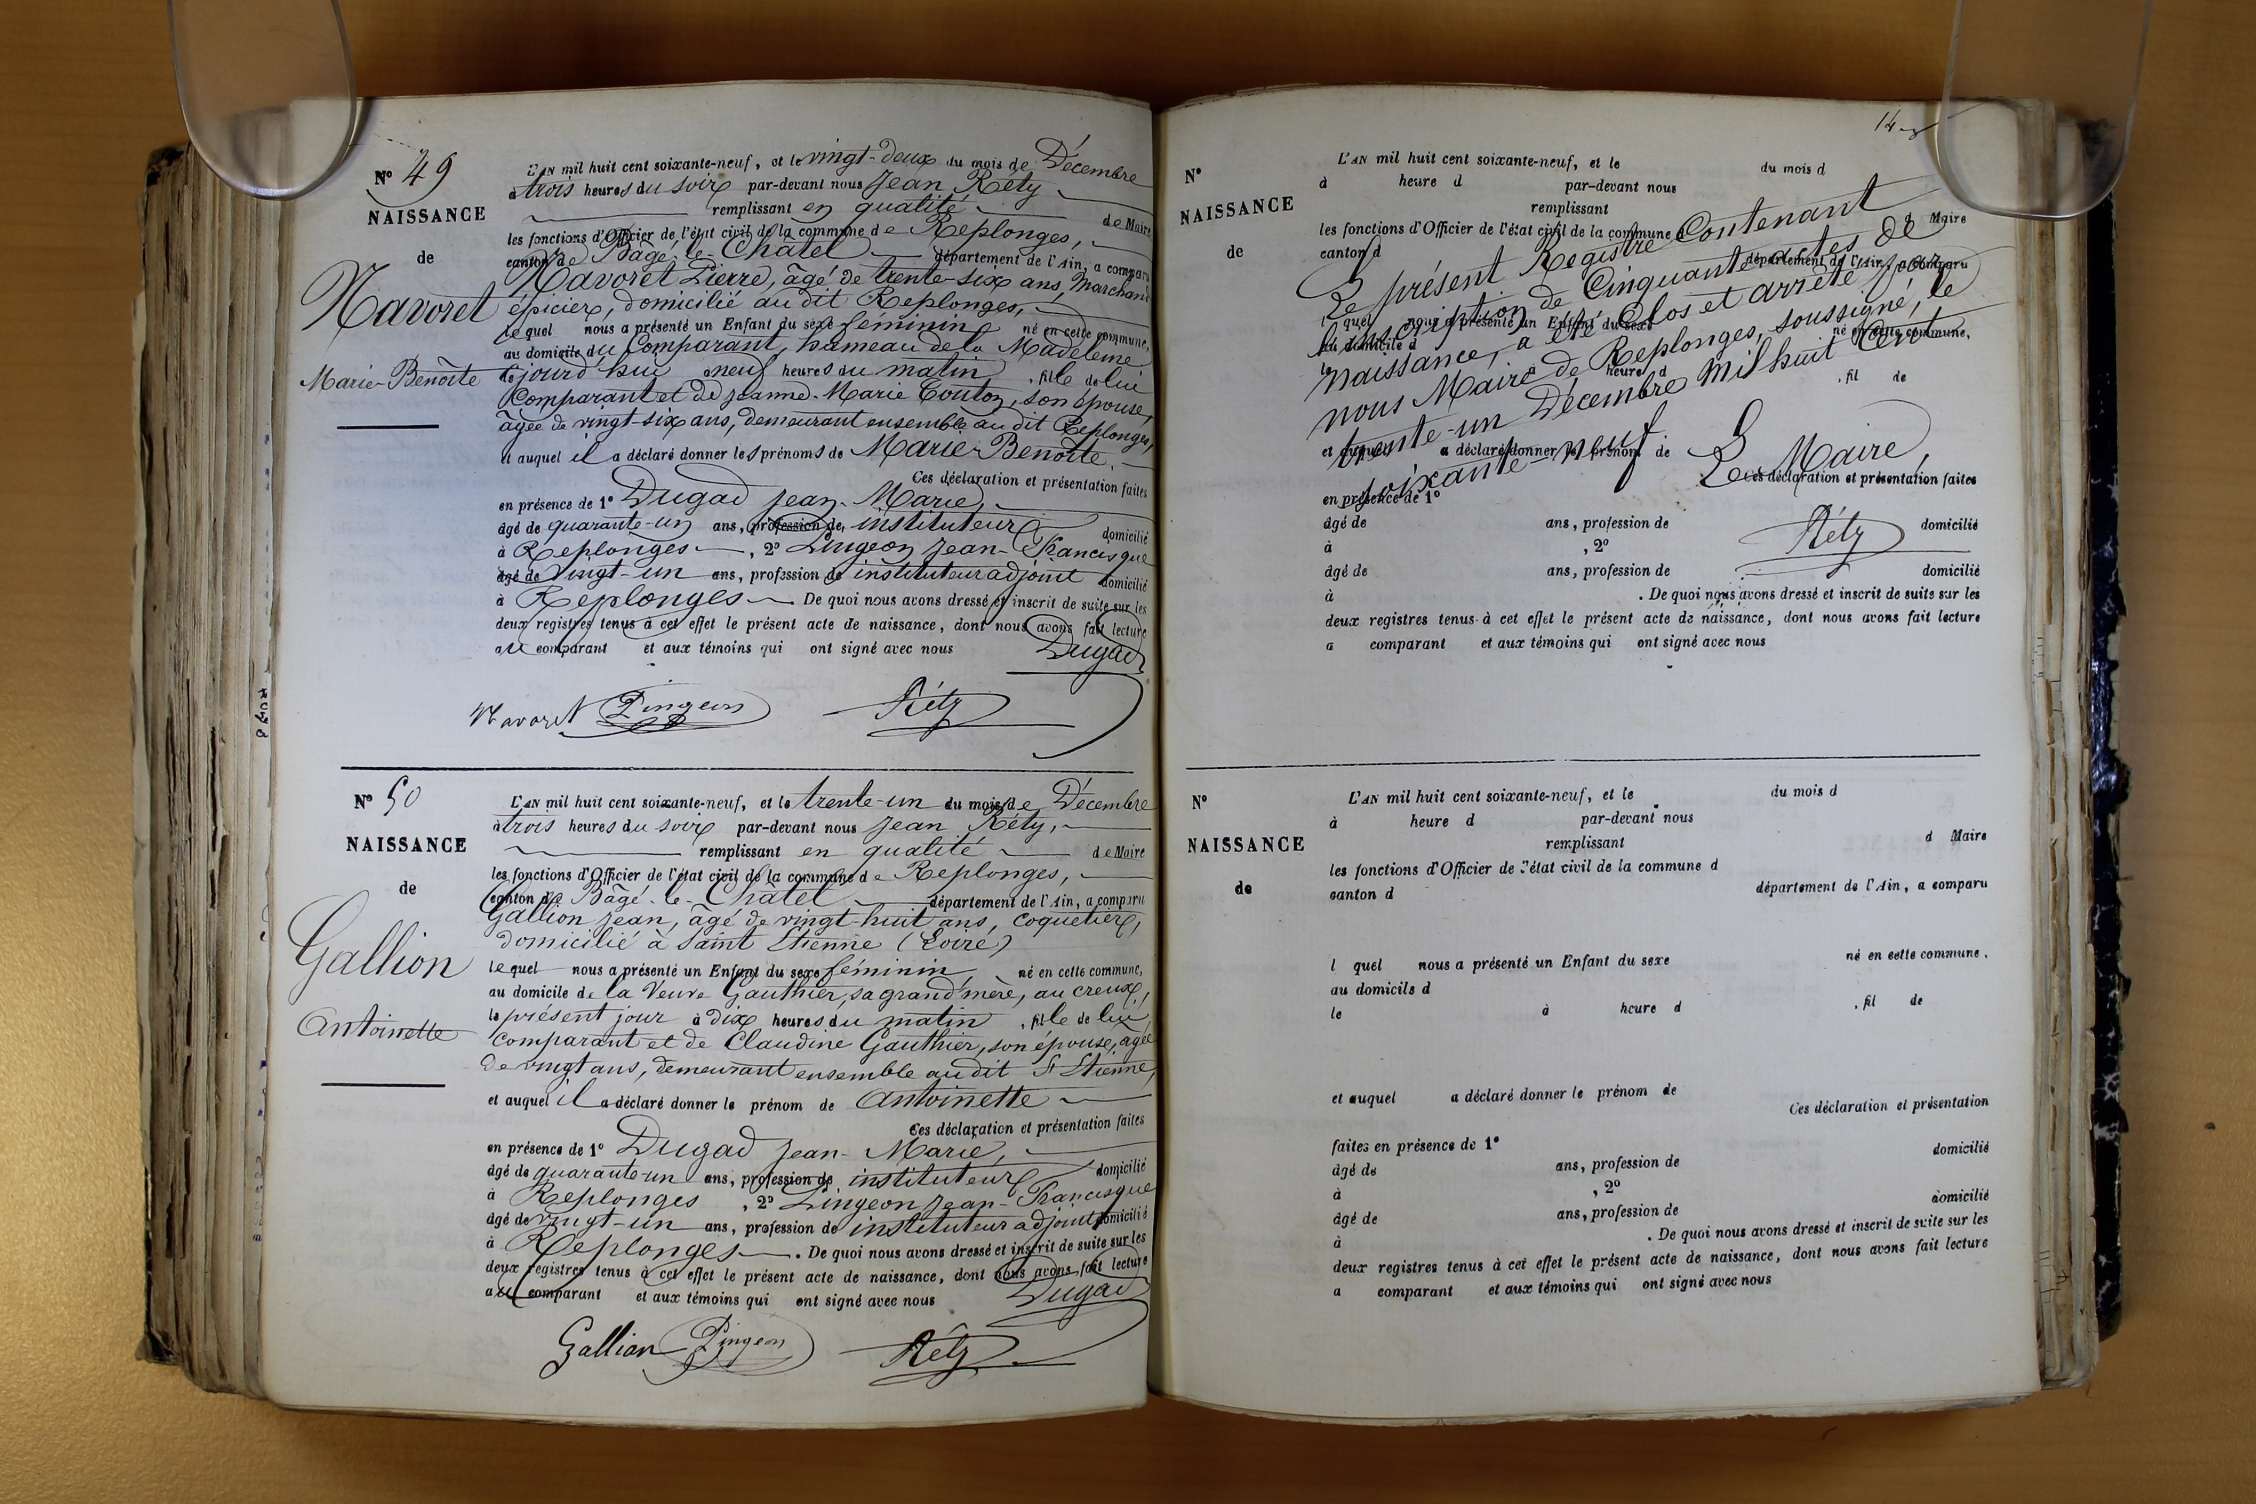 N° 49
NAISSANCE
de
Navoret
Marie-Benoîte
L'AN mil huit cent soixante-neuf, et le vingt-deux du mois de Décembre
à trois heures du soir par-devant nous Jean Réty
remplissant en qualité de Maire
les fonctions d'Officier de l'état civil de la commune de Replonges,
canton de Bagé-le-Châtel département de l'Ain, a comparu
Navoret Pierre, âgé de trente-six ans, Marchand
épicier, domicilié au dit Replonges,
lequel nous a présenté un Enfant du sexe féminin né en cette commune,
au domicile du Comparant, hameau de la Madeleine
le jourd'hui à neuf heures du matin, fille de lui
Comparant et de Jeanne-Marie Couton, son épouse,
âgée de vingt-six ans, demeurant ensemble au dit Replonges,
et auquel il a déclaré donner les prénoms de Marie-Benoîte.
Ces déclaration et présentation faites
en présence de 1° Dugad Jean-Marie,
âgé de quarante-un ans, profession de instituteur domicilié
à Replonges, 2° Pingeon Jean-Francisque
âgé de vingt-un ans, profession de instituteur adjoint domicilié
à Replonges. De quoi nous avons dressé et inscrit de suite sur les
deux registres tenus à cet effet le présent acte de naissance, dont nous avons fait lecture
au comparant et aux témoins qui ont signé avec nous
Dugad
Navoret Pingeon Réty
N° 50
NAISSANCE
de
Gallion
Antoinette
L'AN mil huit cent soixante-neuf, et le trente-un du mois de Décembre
à trois heures du soir par-devant nous Jean Réty,
remplissant en qualité de Maire
les fonctions d'Officier de l'état civil de la commune de Replonges,
canton de Bagé-le-Châtel département de l'Ain, a comparu
Gallion Jean, âgé de vingt-huit ans, coquetier,
domicilié à Saint Etienne (Loire)
lequel nous a présenté un Enfant du sexe féminin, né en cette commune,
au domicile de la Veuve Gauthier, sa grand'mère, au creux,
le présent jour à dix heures du matin, fille de lui
comparant et de Claudine Gauthier, son épouse, agée
de vingt ans, demeurant ensemble au dit St Etienne,
et auquel il a déclaré donner le prénom de Antoinette
Ces déclaration et présentation faites
en présence de 1° Dugad Jean-Marie,
âgé de quarante-un ans, profession de instituteur domicilié
à Replonges, 2° Pingeon Jean-Francisque
âgé de vingt-un ans, profession de instituteur adjoint domicilié
à Replonges. De quoi nous avons dressé et inscrit de suite sur les
deux registres tenus à cet effet le présent acte de naissance, dont nous avons fait lecture
au comparant et aux témoins qui ont signé avec nous
Dugad
Gallion Pingeon Réty
14
N°
NAISSANCE
de
L'AN mil huit cent soixante-neuf, et le du mois d
à heure d par-devant nous
remplissant d Maire
les fonctions d'Officier de l'état civil de la commune d
canton d département de l'Ain, a comparu
Le présent Registre Contenant
l'inscription de Cinquante actes de
naissance, a été Clos et arrêté par
nous Maire de Replonges, soussigné, le
trente-un Décembre mil huit Cent
soixante-neuf.
Le Maire,
Réty
l quel nous a présenté un Enfant du sexe né en cette commune,
au domicile d
le heure d , fil de
et auquel a déclaré donner le prénom de
Ces déclaration et présentation faites
en présence de 1°
âgé de ans, profession de domicilié
à , 2°
âgé de ans, profession de domicilié
à . De quoi nous avons dressé et inscrit de suite sur les
deux registres tenus à cet effet le présent acte de naissance, dont nous avons fait lecture
a comparant et aux témoins qui ont signé avec nous
N°
NAISSANCE
de
L'AN mil huit cent soixante-neuf, et le du mois d
à heure d par-devant nous
remplissant d Maire
les fonctions d'Officier de l'état civil de la commune d
canton d département de l'Ain, a comparu
l quel nous a présenté un Enfant du sexe né en cette commune,
au domicile d
le à heure d , fil de
et auquel a déclaré donner le prénom de
Ces déclaration et présentation
faites en présence de 1° domicilié
âgé de ans, profession de
à , 2° domicilié
âgé de ans, profession de
à . De quoi nous avons dressé et inscrit de suite sur les
deux registres tenus à cet effet le présent acte de naissance, dont nous avons fait lecture
a comparant et aux témoins qui ont signé avec nous